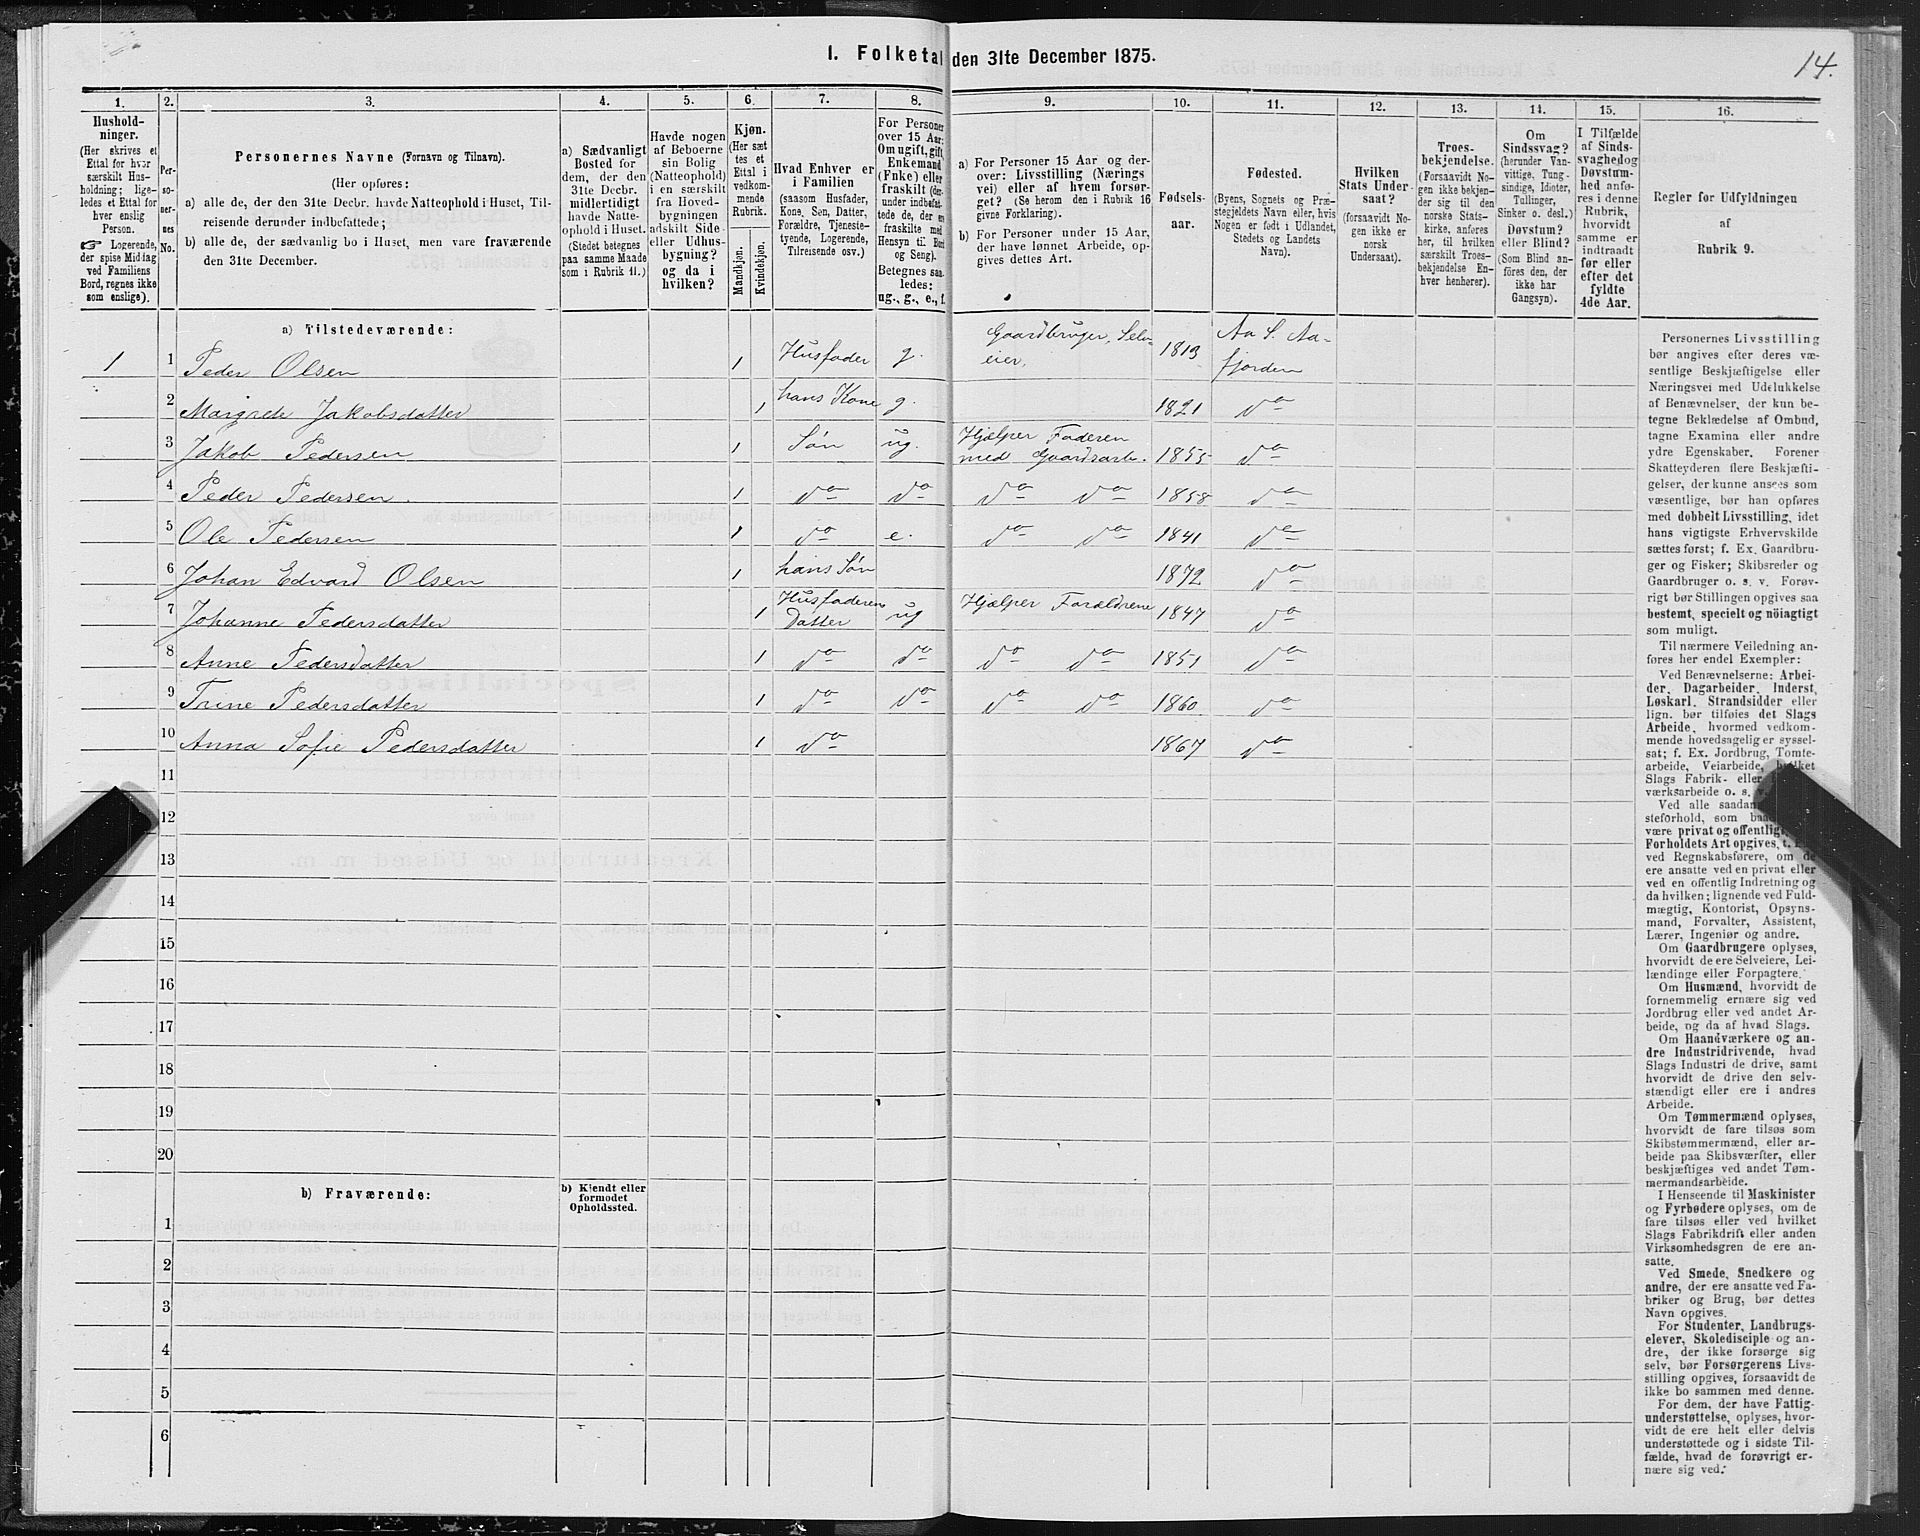 1. Folketal den 31te December 1875.
14.
1. 2. 3. 4. 5. 6. 7. 8. 9. 10. 11. 12. 13. 14. 15. 16.
Hushold-
ninger.
(Her skrives et
Ettal for hver
særskilt Hus-
holdning; lige-
ledes et Ettal for
hver enslig
Person.
☞ Logerende,
der spise Middag
ved Familiens
Bord, regnes ikke
som enslige).
Per-
so-
ner-
nes
No.
Personernes Navne (Fornavn og Tilnavn).
(Her opføres:
a) alle de, der den 31te Decbr. havde Natteophold i Huset, Til-
reisende derunder indbefattede;
b) alle de, der sædvanlig bo i Huset, men vare fraværende
den 31te December.
a) Sædvanligt
Bosted for
dem, der den
31te Decbr.
midlertidigt
havde Natte-
ophold i Huset.
(Stedet betegnes
paa samme Maade
som i Rubrik 11.)
Havde nogen
af Beboerne
sin Bolig
(Natteophold)
i en særskilt
fra Hoved-
bygningen
adskilt Side-
eller Udhus-
bygning?
og da i
hvilken?
Kjøn.
(Her sæt-
tes et
Ettal i
vedkom-
mende
Rubrik.
Mandkjøn.
Kvindekjøn.
Hvad Enhver er
i Familien
(saasom Husfader,
Kone, Søn, Datter,
Forældre, Tjeneste-
tyende, Logerende,
Tilreisende osv.)
For Personer
over 15 Aar:
Om ugift, gift,
Enkemand
(Enke) eller
fraskilt (der-
under indbefat-
tede de, der ere
fraskilte med
Hensyn til Bord
og Seng).
Betegnes saa-
ledes:
ug., g., e., f.
a) For Personer 15 Aar og der-
over: Livsstilling (Nærings
vei) eller af hvem forsør-
get? (Se herom den i Rubrik 16
givne Forklaring).
b) For Personer under 15 Aar,
der have lønnet Arbeide, op-
gives dettes Art.
Fødsels-
aar.
Fødested.
(Byens, Sognets og Præ-
stegjeldets Navn eller, hvis
Nogen er født i Udlandet,
Stedets og Landets
Navn).
Hvilken
Stats Under-
saat?
(forsaavidt No-
gen ikke er
norsk
Undersaat).
Troes-
bekjendelse.
(Forsaavidt
Nogen ikke bekjen-
der sig til den
norske Stats-
kirke, anføres
her, til hvilken
særskilt Troes-
bekjendelse En-
hver henhører).
Om
Sindssvag?
(herunder Van-
vittige, Tung-
sindige, Idioter,
Tullinger,
Sinker o. desl.)
Døvstum?
eller Blind?
(Som Blind an-
føres den, der
ikke har
Gangsyn).
I Tilfælde
af Sinds-
svaghed og
Døvstum-
hed anfø-
res i denne
Rubrik,
hvorvidt
samme er
indtraadt
før eller
efter det
fyldte
4de Aar.
Regler for Udfyldningen
af
Rubrik 9.
a) Tilstedeværende:
1 1 Peder Olsen 1 Husfader g. Gaardbruger, Selv-
eier, 1813 Aa S. Aa-
fjorden
2 Margrete Jakobsdatter 1 hans Kone g. 1821 do
3 Jakob Pedersen 1 Søn ug. Hjælper Faderen
med Gaardsarb. 1855 do
4 Peder Pedersen. 1 do do do do 1858 do
5 Ole Pedersen 1 do e. do do 1841 do
6 Johan Edvard Olsen 1 hans Søn 1872 do
7 Johanne Pedersdatter 1 Husfaderens
Datter ug Hjælper Forældrene 1847 do
8 Anne Pedersdatter 1 do do do do 1851 do
9 Trine Pedersdatter 1 do do do do 1860 do
10 Anna Sofie Pedersdatter 1 do 1867 do
11
12
13
14
15
16
17
18
19
20
b) Fraværende:
b) Kjendt eller
formodet
Opholdssted.
1
2
3
4
5
6
Personernes Livsstilling
bør angives efter deres væ-
sentlige Beskjæftigelse eller
Næringsvei med Udelukkelse
af Benævnelser, der kun be-
tegne Beklædelse af Ombud,
tagne Examina eller andre
ydre Egenskaber. Forener
Skatteyderen flere Beskjæfti-
gelser, der kunne anses som
væsentlige, bør han opføres
med dobbelt Livsstilling, idet
hans vigtigste Erhvervskilde
sættes først; f. Ex. Gaardbru-
ger og Fisker; Skibsreder og
Gaardbruger o. s. v. Forøv-
rigt bør Stillingen opgives saa
bestemt, specielt og nöiagtigt
som muligt.
Til nærmere Veiledning an-
føres her endel Exempler:
Ved Benævnelserne: Arbei-
der, Dagarbeider, Inderst,
Løskarl, Strandsidder eller
lign. bør tilføies det Slags
Arbeide, hvormed vedkom-
mende hovedsagelig er syssel-
sat; f. Ex. Jordbrug, Tomte-
arbeide, Veiarbeide, hvilket
Slags Fabrik- eller
værksarbeide o. s. v.
Ved alle saadan
steforhold, som baa
være privat og offentligt,
Forholdets Art opgives, t. Ex.
ved Regnskabsførere, om de
ere ansatte ved en privat eller
ved en offentlig Indretning og
da hvilken; lignende ved Fuld-
mægtig, Kontorist, Opsyns-
mand, Forvalter, Assistent,
Lærer, Ingeniør og andre.
Om Gaardbrugere oplyses,
hvorvidt de ere Selveiere, Lei-
lændinge eller Forpagtere.
Om Husmænd, hvorvidt de
fornemmelig ernære sig ved
Jordbrug eller ved andet Ar-
beide, og da af hvad Slags.
Om Haandværkere og an-
dre Industridrivende, hvad
Slags Industri de drive, samt
hvorvidt de drive den selv-
stændigt eller ere i andres
Arbeide.
Om Tømmermænd oplyses,
hvorvidt de fare tilsøs som
Skibstømmermænd, eller ar-
beide paa Skibsværfter, eller
beskjæftiges ved andet Tøm-
mermandsarbeide.
I Henseende til Maskinister
og Fyrbødere oplyses, om de
fare tilsøs eller ved hvilket
Slags Fabrikdrift eller anden
Virksomhedsgren de ere an-
satte.
Ved Smede, Snedkere og
andre, der ere ansatte ved Fa-
briker og Brug, bør dettes
Navn opgives.
For Studenter, Landbrugs-
elever, Skoledisciple og an-
dre, der ikke forsørge sig
selv, bør Forsørgerens Livs-
stilling opgives, forsaavidt de
ikke bo sammen med denne.
For dem, der have Fattig-
understøttelse, oplyses, hvor-
vidt de ere helt eller delvis
understøttede og i sidste Til-
fælde, hvad de forøvrigt er-
nære sig ved.